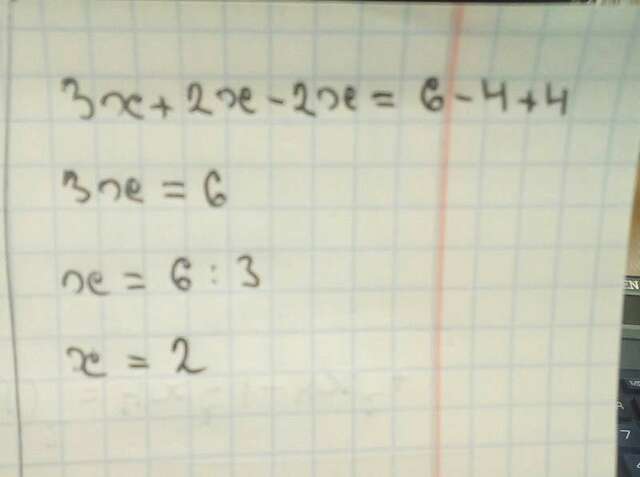 3x + 2x - 2x = 6 - 4 + 4
3x = 6
x = 6 : 3
x = 2